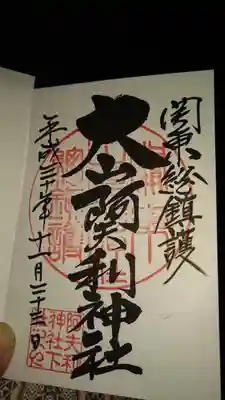 関東総鎮護
大山阿夫利神社
平成三十年十一月二十三日
阿夫利
神社下